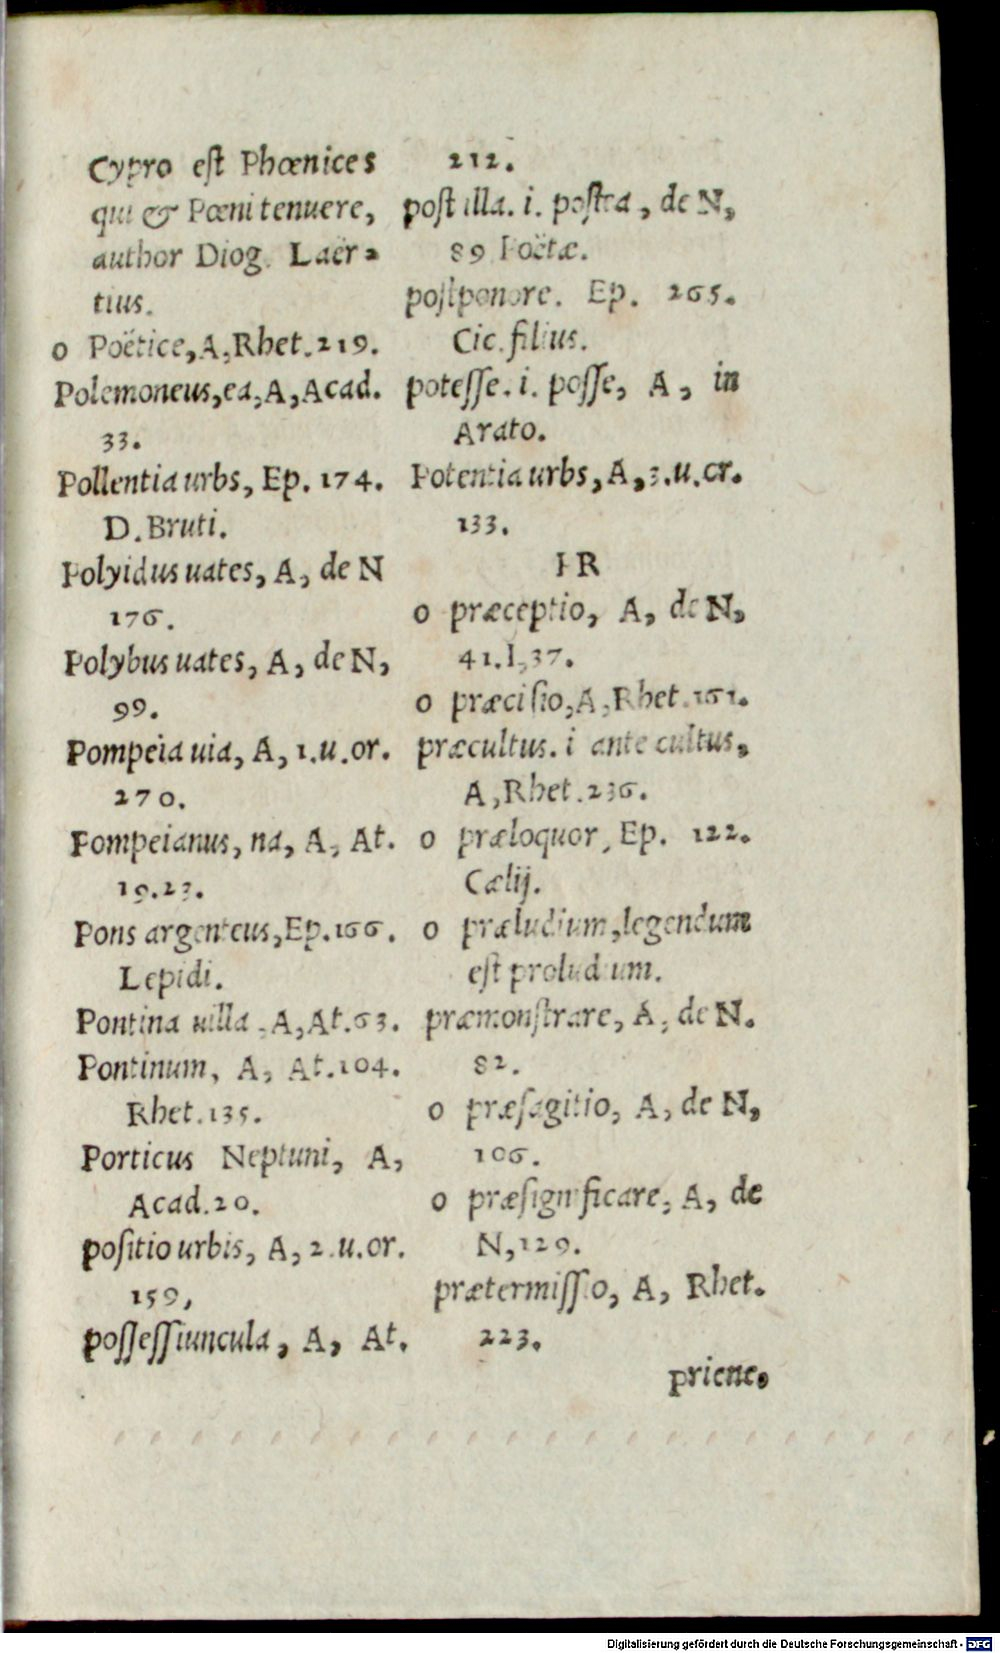 Cypro est Phœnices
qui & Pœni tenuere,
author Diog. Laër-
tius.
o Poëtice, A, Rhet. 219.
Polemoneus, ea, A, Acad.
33.
Pollentia urbs, Ep. 174.
D. Bruti.
Polyidus uates, A, de N
176.
Polybus uates, A, de N,
99.
Pompeia uia, A, 1. u. or.
270.
Pompeianus, na, A, At.
19. 23.
Pons argenteus, Ep. 166.
Lepidi.
Pontina uilla, A, At. 63.
Pontinum, A, At. 104.
Rhet. 135.
Porticus Neptuni, A,
Acad. 20.
positio urbis, A, 2. u. or.
159,
possessiuncula, A, At.
212.
post illa. i. postea, de N,
89 Poëtæ.
postponere. Ep. 265.
Cic. filius.
potesse. i. posse, A, in
Arato.
Potentia urbs, A, 3. u. or.
133.
PR
o præceptio, A, de N,
41. I, 37.
o præcisio, A, Rhet. 161.
præcultus. i ante cultus,
A, Rhet. 236.
o præloquor, Ep. 122.
Cælij.
o præludium, legendum
est proludium.
præmonstrare, A, de N.
82.
o præsagitio, A, de N,
106.
o præsignificare, A, de
N, 129.
prætermissio, A, Rhet.
223.
priene.
Digitalisierung gefördert durch die Deutsche Forschungsgemeinschaft - DFG